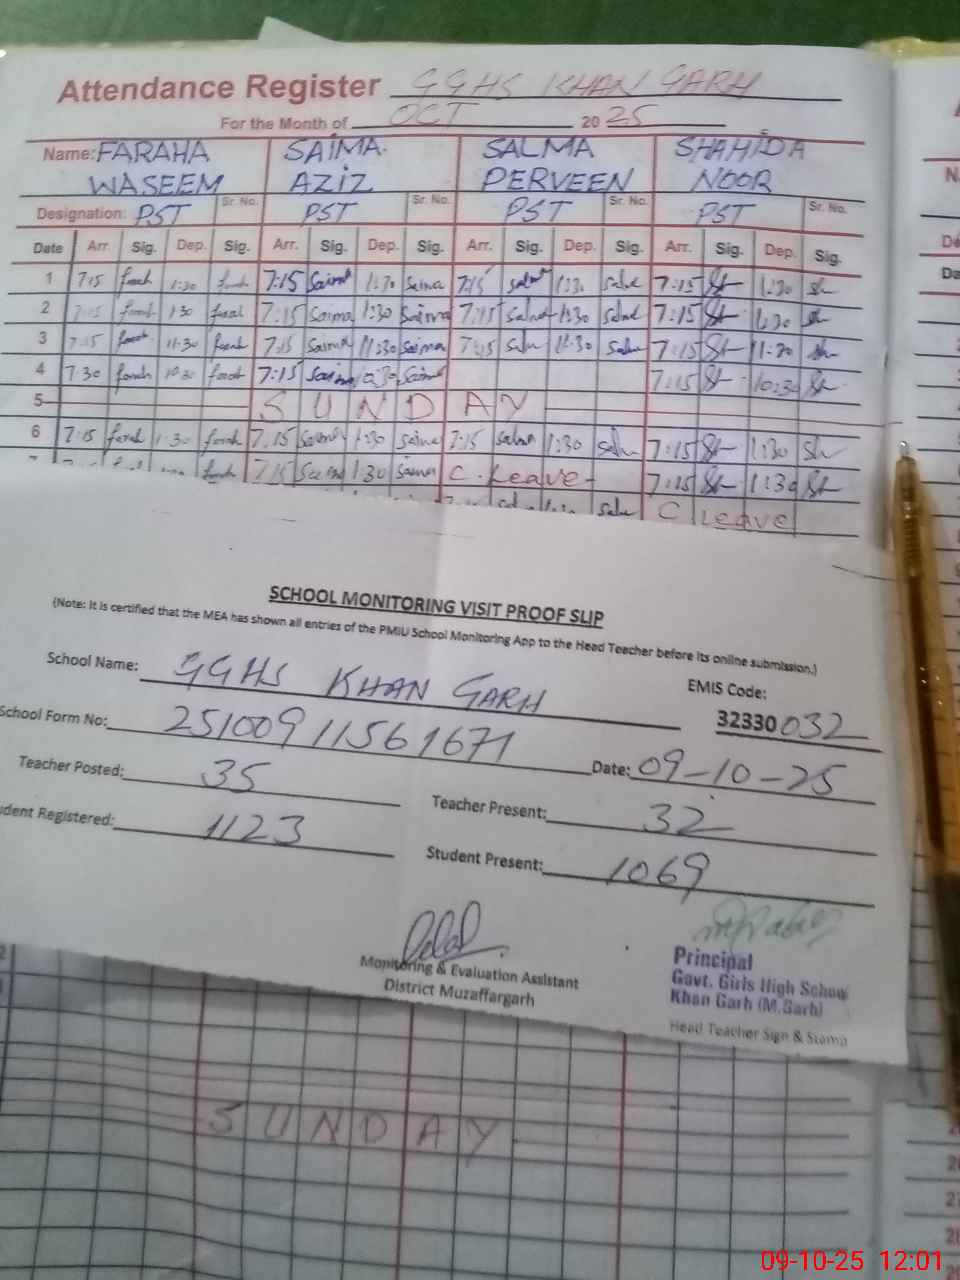 Attendance Register GGHS KHAN GARH
For the Month of OCT 20 25
Name: FARAHA WASEEM SAIMA AZIZ SALMA PERVEEN SHAHIDA NOOR
Designation: PST Sr. No. PST Sr. No. PST Sr. No. PST Sr. No.
Date Arr. Sig. Dep. Sig. Arr. Sig. Dep. Sig. Arr. Sig. Dep. Sig. Arr. Sig. Dep. Sig.
1 7:15 farah 1:30 farah 7:15 Saima 1:30 Saima 7:15 salma 1:30 7:15 Sh 1:30 sh
2 7:15 farah 1:30 7:15 Saima 1:30 Saima 7:15 salma 1:30 7:15 Sh 1:30 sh
3 7:15 farah 11:30 farah 7:15 Saima 11:30 Saima 7:15 11:30 7:15 Sh sh
4 7:30 farah 10:30 farah 7:15 Saima 10:30 Saima 7:15 Sh 10:30 Sh
5 SUNDAY
6 7:15 farah 1:30 farah 7:15 Saima 1:30 saima 7:15 salma 1:30 7:15 Sh 1:30 Sh
farah 7:15 Saima 1:30 Saima C. Leave 7:15 Sh 1:30 Sh
C Leave
SCHOOL MONITORING VISIT PROOF SLIP
(Note: It is certified that the MEA has shown all entries of the PMIU School Monitoring App to the Head Teacher before its online submission.)
School Name: GGHS KHAN GARH EMIS Code: 32330032
School Form No: 25100911561671 Date: 09-10-25
Teacher Posted: 35 Teacher Present: 32
dent Registered: 1123 Student Present: 1069
Monitoring & Evaluation Assistant
District Muzaffargarh
Principal
Govt. Girls High School
Khan Garh (M.Garh)
Head Teacher Sign & Stamp
SUNDAY
09-10-25 12:01